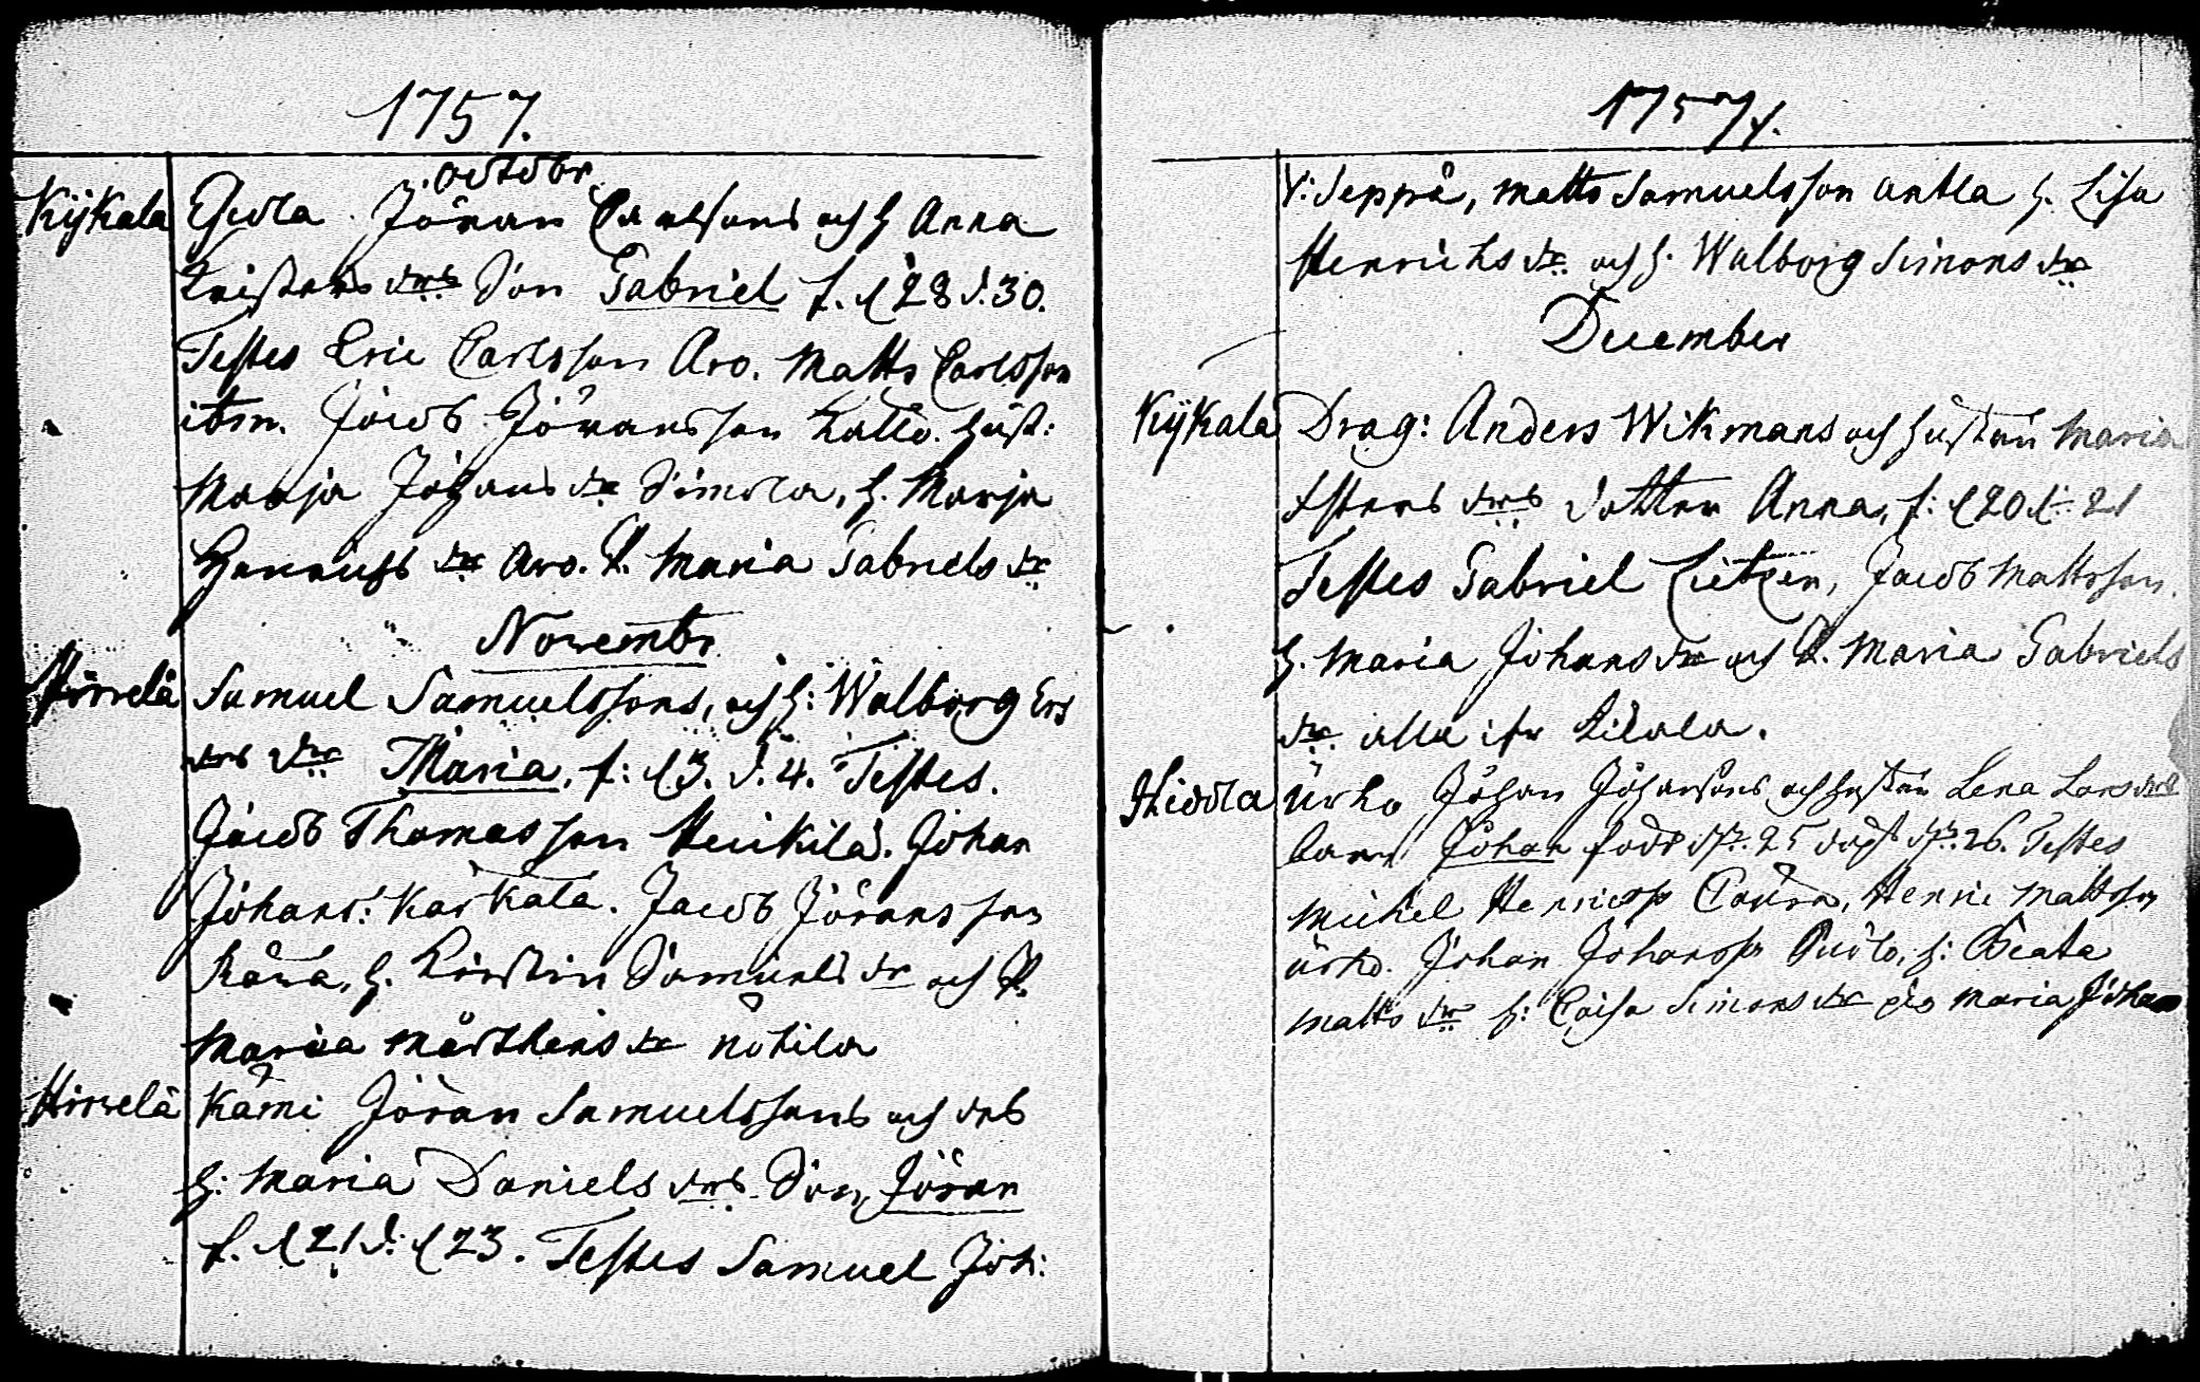 1757.
Octobr.
Kÿkala Jöran Carlsons och h Anna
drs Son Gabriel f. d 28 d. 30.
Testes Eric Carlsson Aro. Matts Carlsson
item. Jacob Jöransson hust:
Marja Johans dr Simola, h. Marja
Henrichs dr Aro. P. Maria Gabriels dr
Novembr.
Hirvelä Samuel Samuelssons, och h: Walborg Ers
drs dr Maria, f: d 3. d. 4. Testes.
Jacob Thomasson Heikilä. Johan
Johans: Karkala. Jacob Jöransson
h. Kirstin Samuels dr och P.
Maria Mårthens dr
Hirvelä Kämi Jöran Samuelssons och drs
h: Maria Daniels drs Son, Jöran
f. d 21 d: d 23. Testes Samuel Joh:
1757
Y: Seppä, Matts Samuelsson Antla h. Lisa
Henrichs dr och h. Walborg Simons dr
December
Kÿkala Drag: Anders Wikmans och hustru Maria
drs dotter Anna, f: d 20 d: 21
Testes Gabriel Jacob Mattsson.
h. Maria Johans dr och P. Maria Gabriels
dr. alla ifr
Johan Johansons och hustru Lena Lars drs
barn Johan född d. 25 döpt d. 26. Testes
Michel Henricss Henric Mattsson
Johan Johanss h: Beata
Matts dr h: Caisa Simons dr Maria Johan